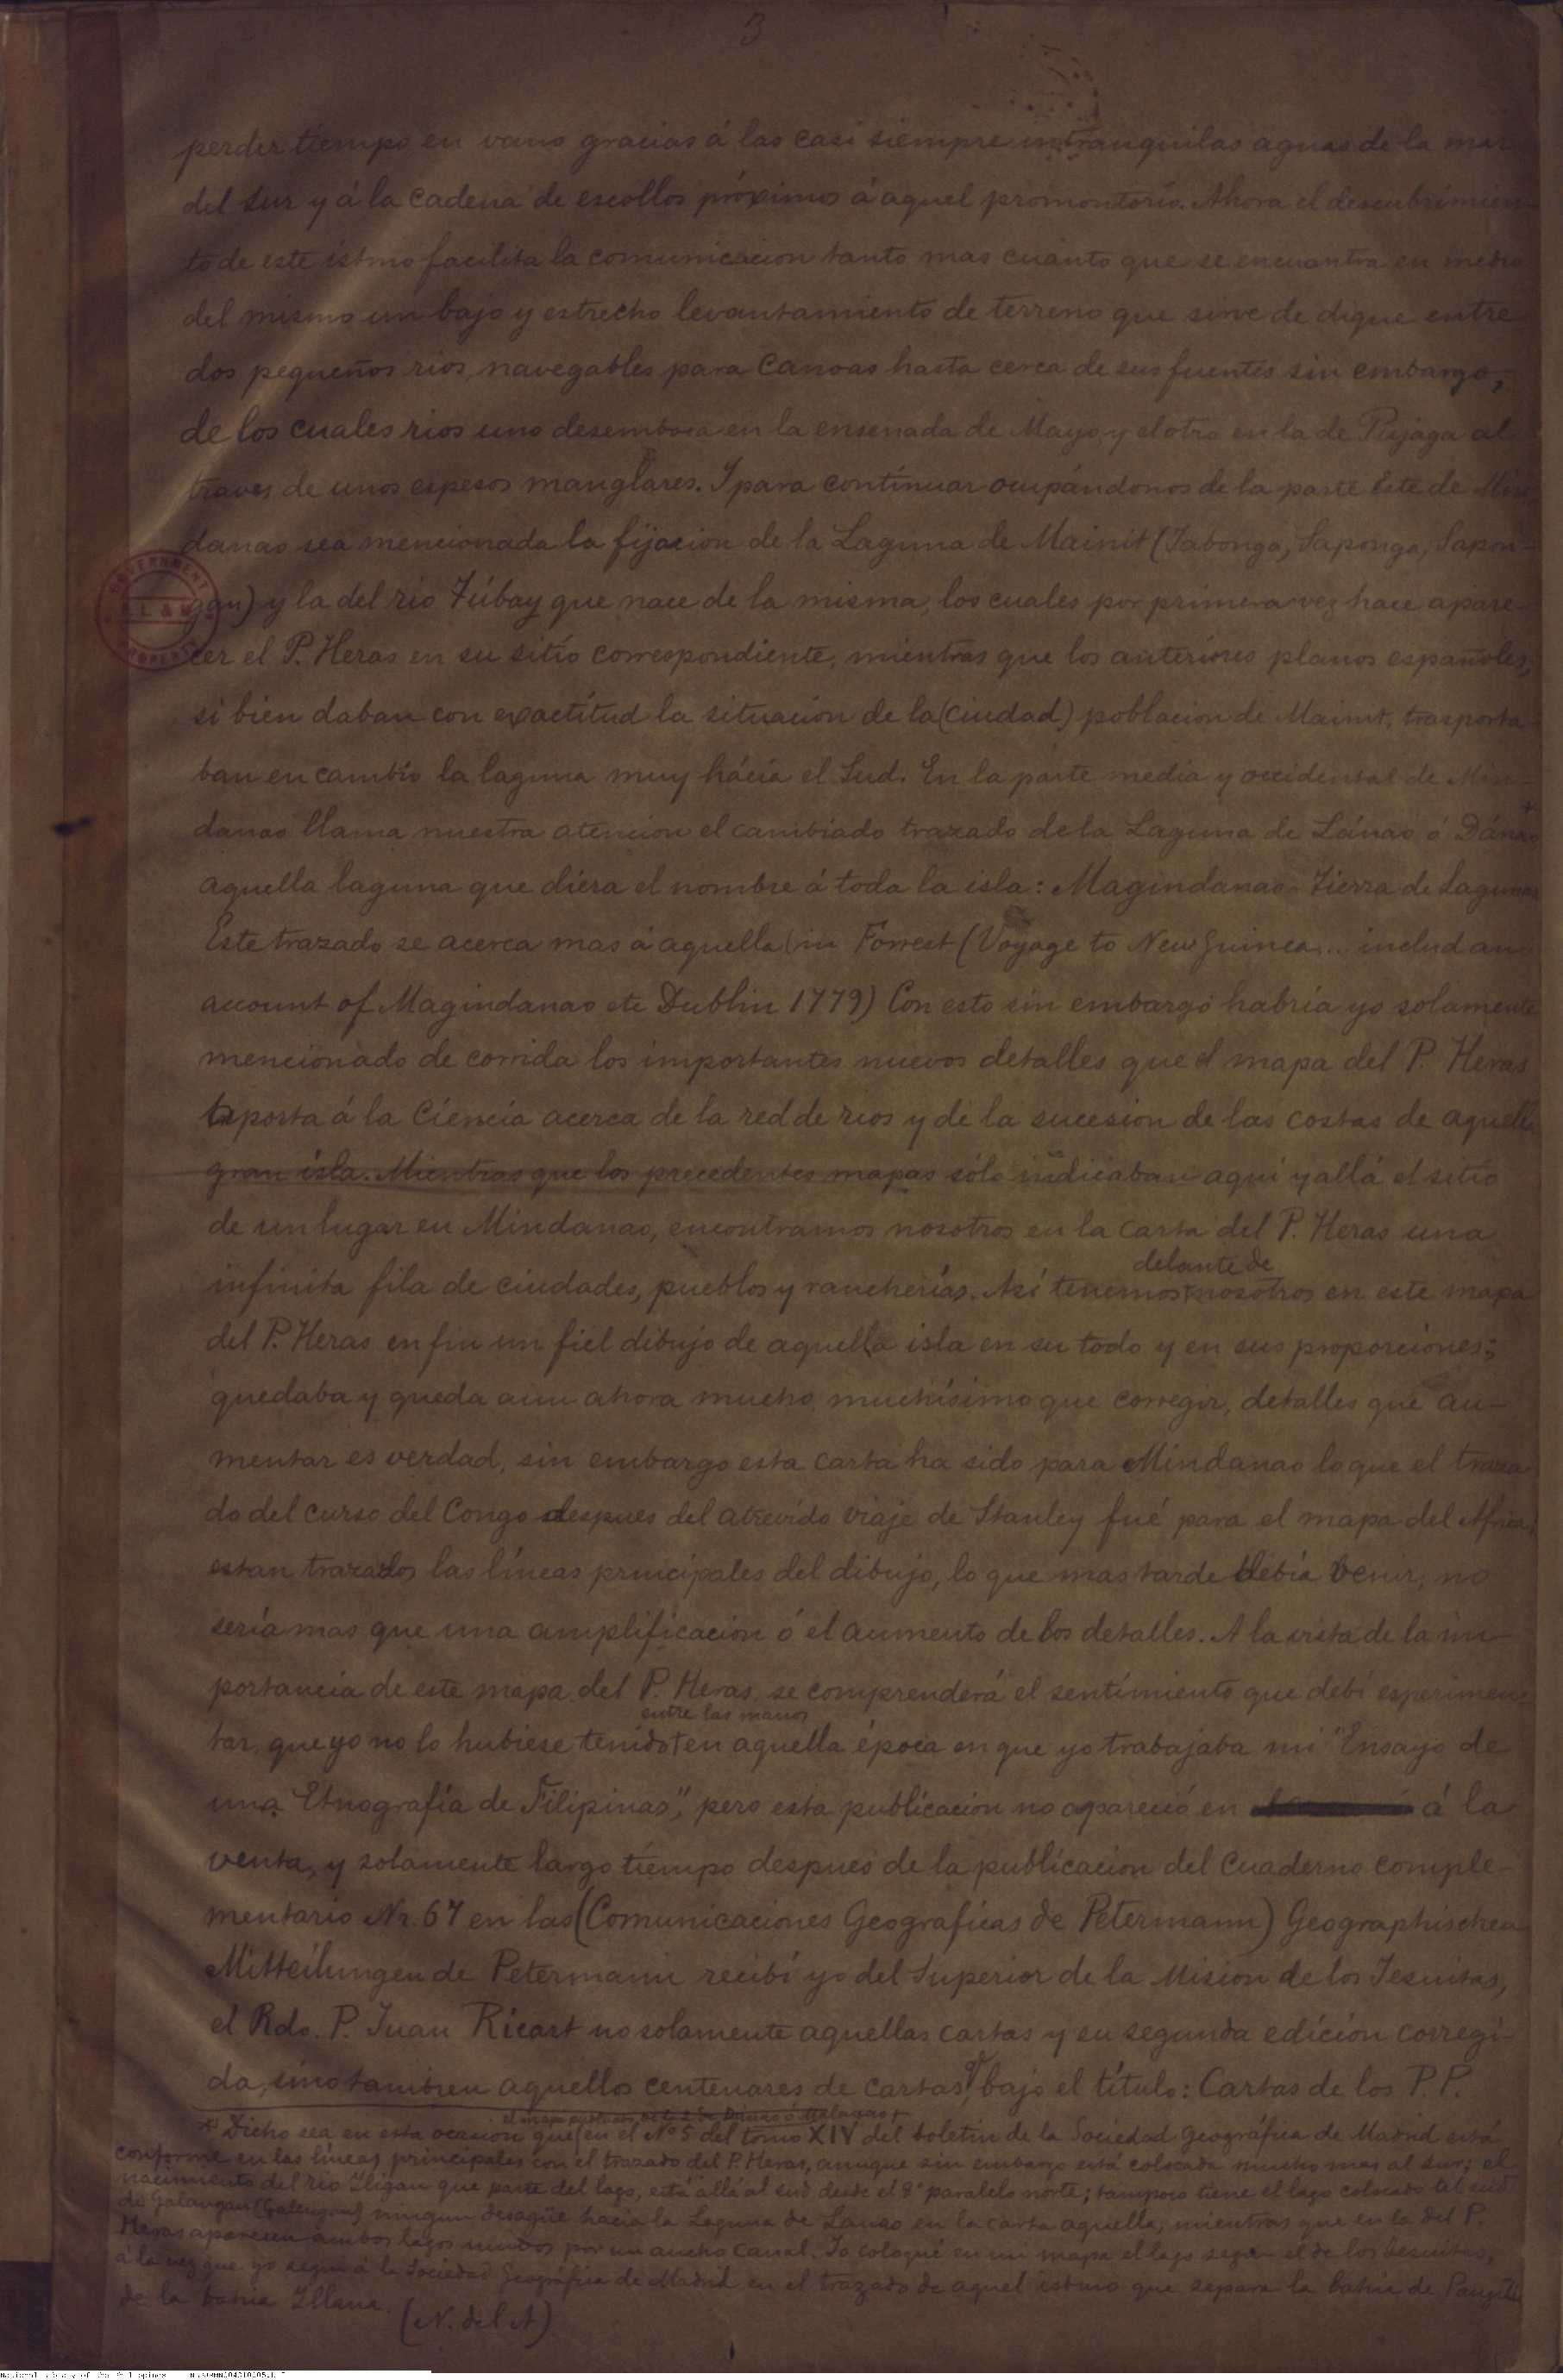 3
perder tiempo en vano gracias á las casi siempre intranquilas aguas de la mar
del Sur y á la cadena de escollos próximos á aquel promontorio. Ahora el descubrimien-
to de este istmo facilita la comunicacion tanto mas cuanto que se encuentra en medio
del mismo un bajo y estrecho levantamiento de terreno que sirve de dique entre
dos pequeños rios, navegables para canoas hasta cerca de sus fuentes sin embargo,
de los cuales rios uno desemboca en la ensenada de Mayo y el otro en la de Pujaga al
traves de unos espesos manglares. I para contínuar ocupándonos de la parte Este de Min-
danao sea mencionada la fijacion de la Laguna de Mainit (Jabonga, Saponga, Sapon-
gan) y la del rio Túbay que nace de la misma, los cuales por primera vez hace apare-
cer el P. Heras en su sitio correspondiente, mientras que los anteriores planos españoles,
si bien daban con exactitud la situacion de la (ciudad) poblacion de Mainit, trasporta-
ban en cambio la laguna muy hácia el Sud. En la parte media y occidental de Min-
danao llama nuestra atencion el cambiado trazado de la Laguna de Lánao ó Dánao +
aquella laguna que diera el nombre á toda la isla: Magindanao = Tierra de Lagunas
Este trazado se acerca mas á aquella in Forrest (Voyage to New Guinea... includ an
account of Magindanao etc Dublin 1779) Con esto sin embargo habría yo solamente
mencionado de corrida los importantes nuevos detalles que el mapa del P. Heras
aporta á la Ciencia acerca de la red de rios y de la sucesion de las costas de aquella
gran isla. Mientras que los precedentes mapas sólo indicaban aqui y allá el sitio
de un lugar en Mindanao, encontramos nosotros en la carta del P. Heras una
infinita fila de ciudades, pueblos y rancherías. Así tenemos delante de nosotros en este mapa
del P. Heras en fin un fiel dibujo de aquella isla en su todo y en sus proporciones;
quedaba y queda aun ahora mucho muchísimo que corregir, detalles que au-
mentar es verdad, sin embargo esta carta ha sido para Mindanao lo que el traza-
do del curso del Congo despues del atrevido viaje de Stanley fué para el mapa del Africa,
estan trazados las líneas principales del dibujo, lo que mas tarde debía venir, no
sería mas que una amplificacion ó el aumento de los detalles. A la vista de la im-
portancia de este mapa del P. Heras, se comprenderá el sentimiento que debí esperimen-
tar, que yo no lo hubiese tenido entre las manos en aquella época en que yo trabajaba mi "Ensayo de
una Etnografía de Filipinas", pero esta publicacion no apareció en á la
venta, y solamente largo tiempo despues de la publicacion del Cuaderno comple-
mentario Nr. 67 en las (Comunicaciones Geograficas de Petermann) Geographischen
Mitteilungen de Petermann recibí yo del Superior de la Mision de los Jesuitas,
el Rdo. P. Juan Ricart no solamente aquellas cartas y su segunda edición corregi-
da, sino tambien aquellos centenares de cartas, bajo el título: Cartas de los P.P.
+ Dicho sea en esta ocasion que en el Nº 5 del tomo XIV del boletin de la Sociedad Geográfica de Madrid está
conforme en las líneas principales con el trazado del P. Heras, aunque sin embargo está colocada mucho mas al sur; el
nacimiento del rio Iligan que parte del lago, está allá al sud desde el 8º paralelo norte; tampoco tiene el lago colocado al sud
de Galangan ningun desagüe hacia la Laguna de Lanao en la carta aquella, mientras que en la del P.
Heras aparecen ambos lagos unidos por un ancho canal. Io coloqué en mi mapa el lago segun el de los Jesuitas,
á la vez que yo seguí á la Sociedad Geográfica de Madrid en el trazado de aquel istmo que separa la bahía de Panguil
de la bahía Illana. (N. del A)